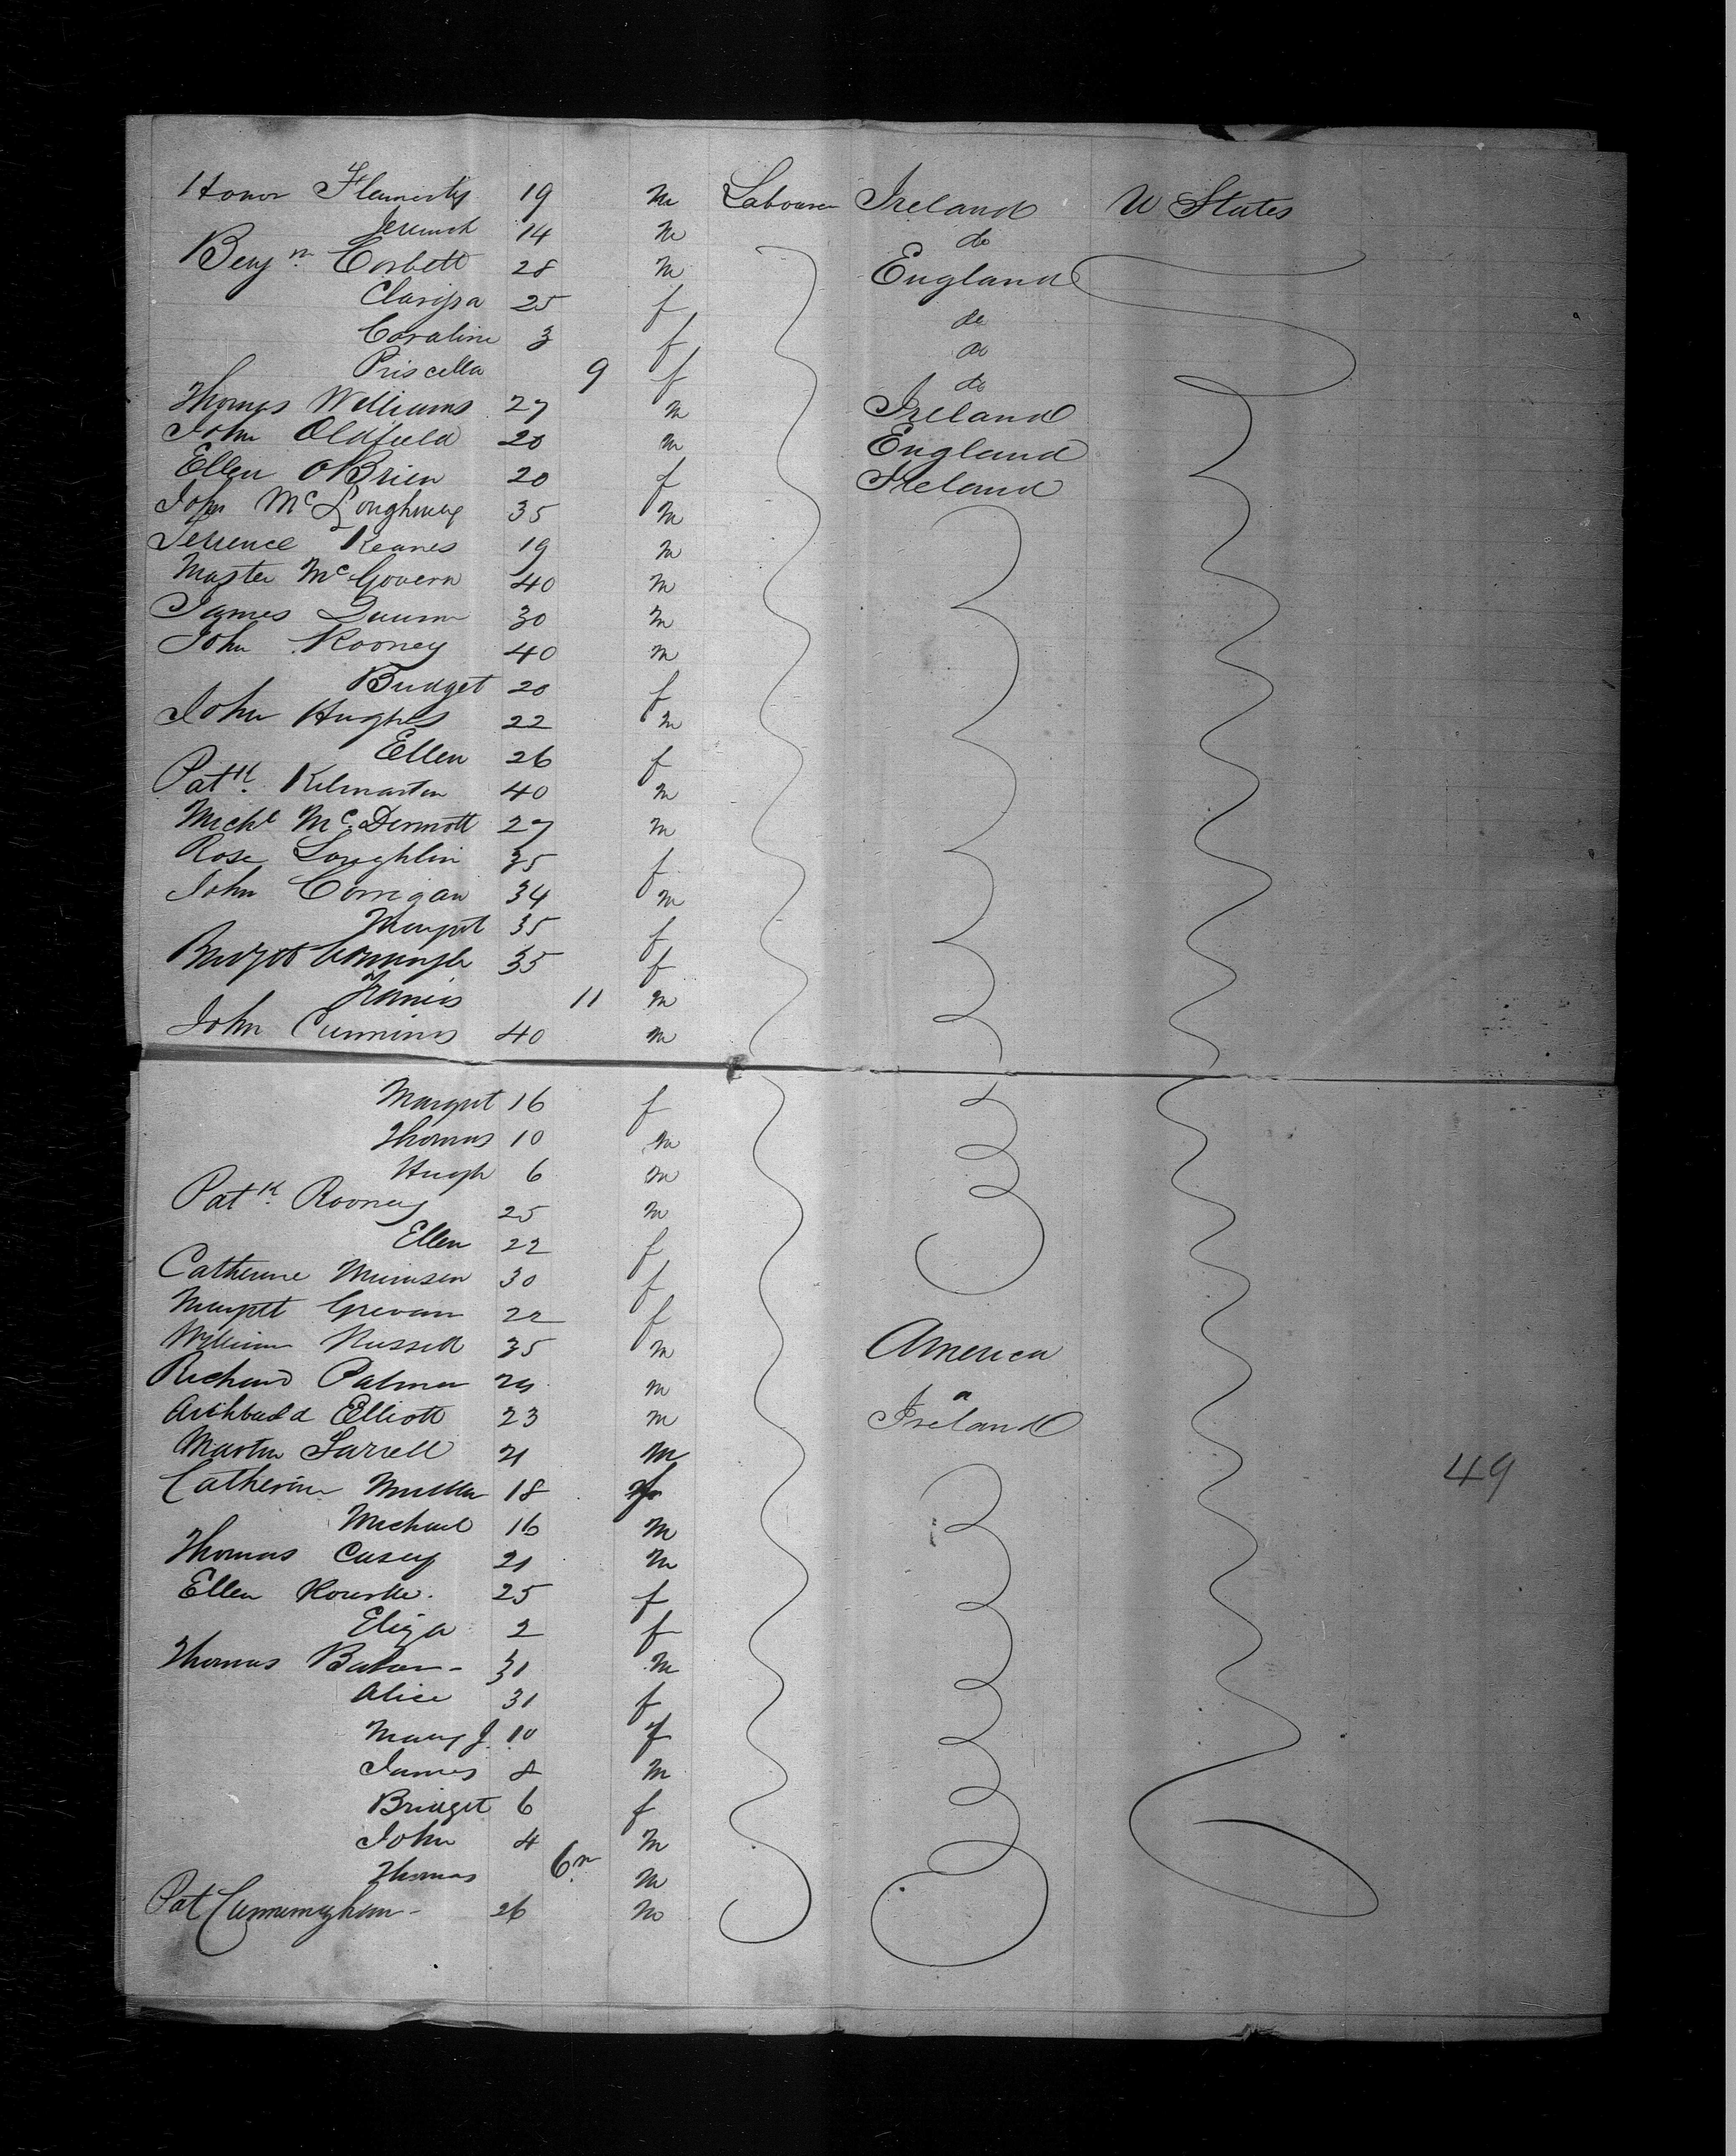 Honor Flamerty 19 m Labourer Ireland U States
Jeremiah 14 m do
Benj n Corbett 28 m England
Clarissa 25 f do
Caroline 3 f do
Priscella 9 f do
Thomas Williams 27 m Ireland
John Oldfield 20 m England
Ellen OBrien 20 f Ireland
John Mc 35 m
Terrence Keanes 19 m
McGovern 40 m
James Quinn 30 m
John Rooney 40 m
Bridget 20 f
John Hughes 22 m
Ellen 26 f
Patk Kilmartin 40 m
Michl McDermott 27 m
Rose Loughlin 35 f
John Corrigan 34 m
Margret 35 f
Bridget 35 f
Francis 11 m
John Cummins 40 m
Margret 16 f
Thomas 10 m
Hugh 6 m
Patk Rooney 25 m
Ellen 22 f
Catherine 30 f
Margret 22 f
William Russell 35 m America
Richard Palmer m "
Archbald Elliott 23 m Ireland
Martin Farrell 21 m
Catherine 18 f
49
Michael 16 m
Thomas Casey 21 m
Ellen Rourke. 25 f
Eliza 2 f
Thomas 31 m
Alice 31 f
Mary J. 10 f
James 8 m
Bridget 6 f
John 4 m
Thomas 6m m
Pat Cunningham - 26 m